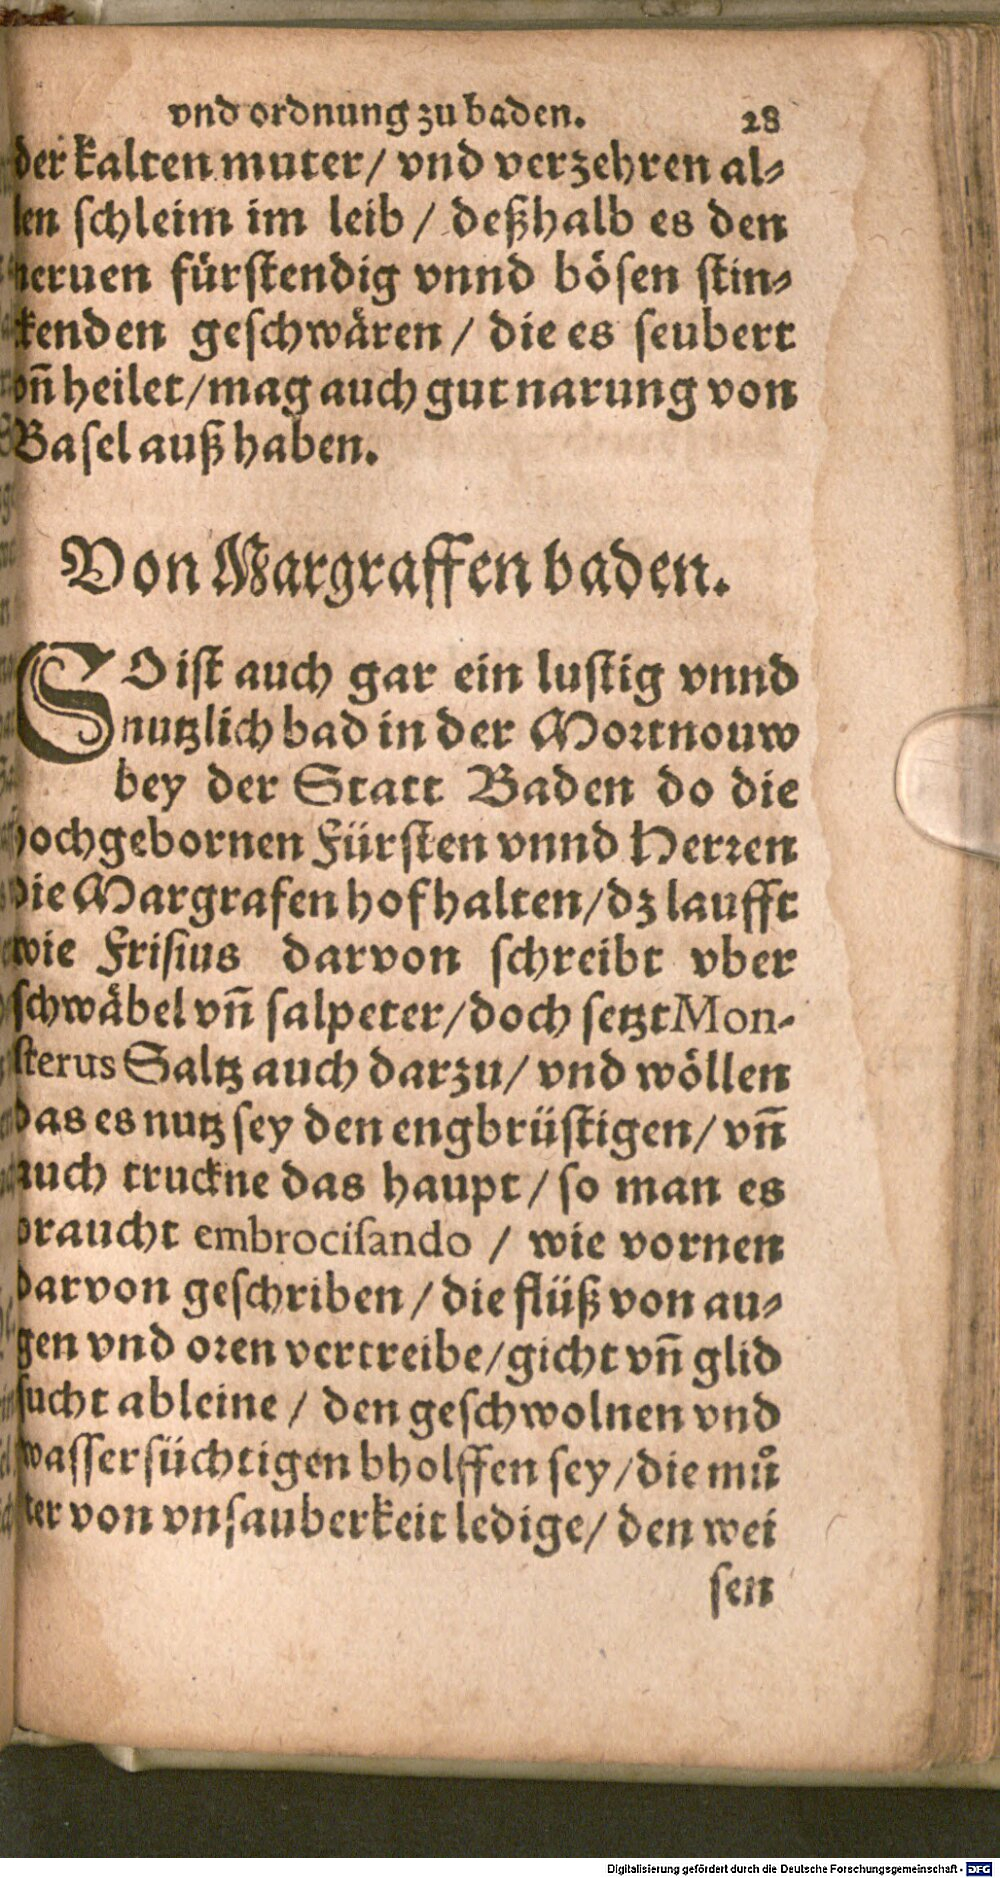 vnd ordnung zu baden. 28
der kalten muter / vnd verzehren al-
len schleim im leib / deßhalb es den
neruen fürstendig vnnd bösen stin-
kenden geschwären / die es seubert
vñ heilet / mag auch gut narung von
Basel auß haben.
Von Margraffen baden.
SO ist auch gar ein lustig vnnd
nutzlich bad in der Mortnouw
bey der Statt Baden do die
hochgebornen Fürsten vnnd Herren
die Margrafen hof halten / dz laufft
wie Frisius darvon schreibt vber
schwäbel vñ salpeter / doch setzt Mon-
sterus Saltz auch darzu / vnd wöllen
das es nutz sey den engbrüstigen / vñ
auch truckne das haupt / so man es
braucht embrocisando / wie vornen
darvon geschriben / die flüß von au-
gen vnd oren vertreibe / gicht vñ glid
sucht ableine / den geschwolnen vnd
wassersüchtigen bholffen sey / die mů
ter von vnsauberkeit ledige / den wei
sen
Digitalisierung gefördert durch die Deutsche Forschungsgemeinschaft - DFG